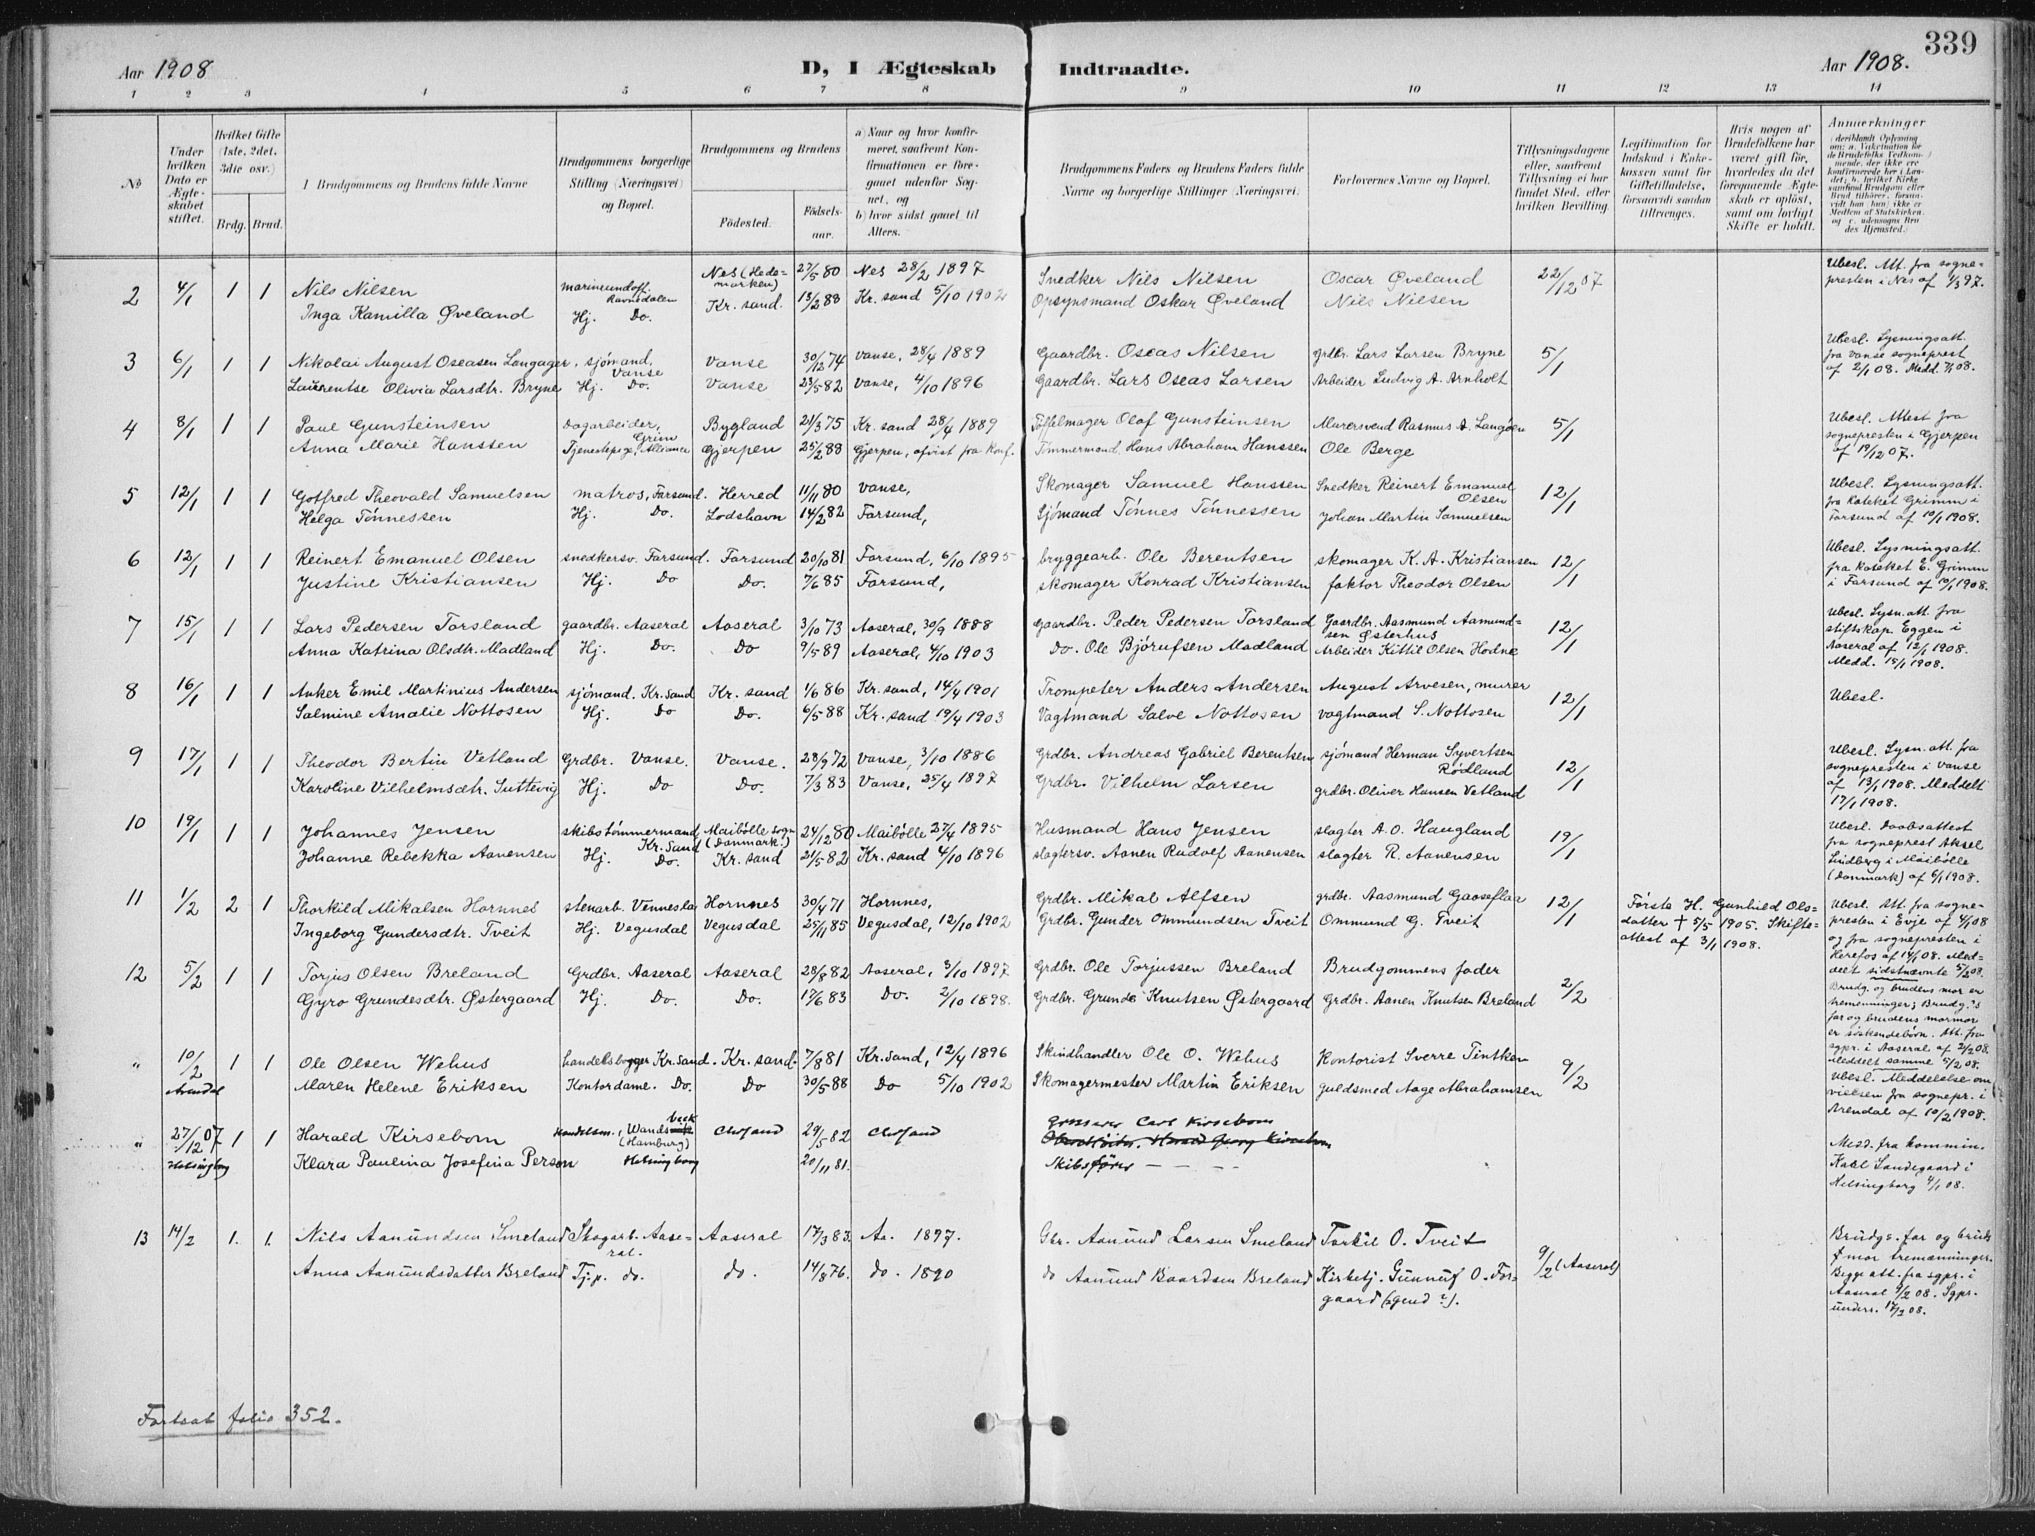 339
Aar 1908
D, I Ægteskab Indtraadte.
Aar 1908.
1 2 3 4 5 6 7 8 9 10 11 12 13 14
No
Under hvilken Dato er Ægteskabet stiftet.
Hvilket Gifte (1ste, 2det, 3die osv.)
Brdg. Brud.
I Brudgommens og Brudens fulde Navne
Brudgommens borgerlige Stilling (Næringsvei) og Bopæl.
Brudgommens og Brudens
Födested. Födsels-aar.
a) Naar og hvor konfirmeret, saafremt Konfirmationen er foregaaet udenfor Sognet, og
b) hvor sidst gaaet til Alters.
Brudgommens Faders og Brudens Faders fulde Navne og borgerlige Stillinger (Næringsvei).
Forlovernes Navne og Bopæl.
Tillysningsdagene eller, saafremt Tillysning ei har fundet Sted, efter hvilken Bevilling.
Legitimation for Indskud i Enkekassen samt for Giftetilladelse, forsaavidt saadan tiltrænges.
Hvis nogen af Brudefolkene har været gift för, hvorledes da det foregaaende Ægteskab er oplöst, samt om lovligt Skifte er holdt.
Anmærkninger
2 4/1 1 1 Nils Nilsen marineundoff. Ravnsdalen Nes (Hedemarken) 27/5 80 Nes 28/2 1897 Snedker Nils Nilsen Oscar Øveland 22/12 07 Ubesl. Att. fra sognepresten i Nes af 1/3 97.
Inga Kamilla Øveland Hj. Do. Kr. sand. 13/2 88 Kr. sand 5/10 1902 Opsynsmand Oskar Øveland Nils Nilsen
3 6/1 1 1 Nikolai August Oseasen Langager, sjömand, Vanse Vanse 30/12 74 Vanse, 28/4 1889 Gaardbr. Oseas Nilsen grdbr. Lars Larsen Bryne 5/1 Ubesl. Lysningsatt. fra Vanse sogneprest af 2/1 08. Medd. 7/1 08.
Laurentse Olivia Larsdtr. Bryne Hj. Do. Vanse 23/5 82 Vanse, 4/10 1896 Gaardbr. Lars Oseas Larsen Arbeider Ludvig A. Arnholt
4 8/1 1 1 Paul Gunsteinsen Dagarbeider, Grim Bygland 21/3 75 Kr. sand 28/4 1889 Töffelmager Olof Gunsteinsen Murersvend Rasmus A. Langöen 5/1 Ubesl. Attest fra sognepresten i Gjerpen af 19/12 07.
Anna Marie Hanssen Tjenestepige, Alliance Gjerpen 25/2 88 Gjerpen, afvist fra Konf. Tömmermand Hans Abraham Hanssen Ole Berge
5 12/1 1 1 Gotfred Theovald Samuelsen matros, Farsund. Herred 11/11 80 Vanse, Skomager Samuel Hanssen Snedker Reinert Emanuel Olsen 12/1 Ubesl. Lysningsatt. fra Kateket Grimm i Farsund af 10/1 1908.
Helga Tönnessen Hj. Do. Lodshavn 14/2 82 Farsund, Sjömand Tönnes Tönnessen Johan Martin Samuelsen
6 12/1 1 1 Reinert Emanuel Olsen snedkersv. Farsund. Farsund 20/10 81 Farsund, 6/10 1895 bryggearb. Ole Berentsen skomager K. A. Kristiansen 12/1 Ubesl. Lysningsatt. fra Kateket E. Grimm i Farsund af 10/1 1908.
Justine Kristiansen Hj. Do Do. 7/6 85 Farsund, skomager Konrad Kristiansen faktor Theodor Olsen
7 15/1 1 1 Lars Pedersen Torsland gaardbr. Aaseral Aaseral 3/10 73 Aaseral, 30/9 1888 gaardbr. Peder Pedersen Torsland Gaardbr. Aasmund Aamundsen Österhus 12/1 Ubesl. Lysn. att. fra stiftskap. Eggen i Aaseral af 12/1 1908. Medd. 15/1 1908.
Anna Katrina Olsdtr. Madland Hj. Do. Do 9/5 89 Aaseral, 4/10 1903 Do. Ole Björufsen Madland Arbeider Kittil Olsen Hodne
8 16/1 1 1 Anker Emil Martinius Andersen sjömand. Kr. Sand Kr. sand 1/6 86 Kr. sand, 14/4 1901 Trompeter Anders Andersen August Arvesen, murer 12/1 Ubesl.
Salmine Amalie Nottosen Hj. Do Do. 6/5 88 Kr. sand 19/4 1903 Vagtmand Salve Nottosen vagtmand S. Nottosen
9 17/1 1 1 Theodor Bertin Vetland Grdbr. Vanse. Vanse. 28/9 72 Vanse, 3/10 1886 Grdbr. Andreas Gabriel Berentsen sjömand Herman Syvertsen Rødland 12/1 Ubesl. Lysn. att. fra sognepresten i Vanse af 13/1 1908. Meddelt 17/1 1908.
Karoline Vilhelmsdtr. Suttevig Hj. Do Do. 7/3 83 Vanse, 25/4 1897 Grdbr. Vilhelm Larsen grdbr. Oliver Hansen Vetland
10 19/1 1 1 Johannes Jensen skibstömmermand Kr. Sand Maibölle sogn (Danmark.) 24/12 80 Maibölle 27/4 1895 Husmand Hans Jensen slagter A. O. Haugland 19/1 Ubesl. Daabsattest fra sogneprest Aksel Lindberg i Maibölle (Danmark) af 6/1 1908.
Johanne Rebekka Aanensen Hj. Do. Kr. sand 21/5 82 Kr. sand 4/10 1896 slagtersv. Aanen Rudolf Aanensen slagter R. Aanensen
11 1/2 2 1 Thorkild Mikalsen Hornnes stenarb. Vennesla Hornnes 30/4 71 Hornnes, Grdbr. Mikal Alfsen grdbr. Aasmund Gaaseflaa 12/1 Første H. Gunhild Olsdatter † 5/5 1905. Skifteattest af 3/1 1908. Ubesl. Att. fra sognepresten i Evje af 4/1 08 og fra sognepresten i Herefos af 14/1 08. Meddelt sidstnævnte 5/2 08.
Ingeborg Gundersdtr. Tveit Hj. Vegusdal Vegusdal 25/11 85 Vegusdal, 12/10 1902 Grdbr. Gunder Ommundsen Tveit Ommund G. Tveit
12 5/2 1 1 Torjus Olsen Breland Grdbr. Aaseral Aaseral 28/8 82 Aaseral, 3/10 1897 Grdbr. Ole Torjussen Breland Brudgommens fader 2/2 Brudg. og brudens mor er tremenninger; Brudg.s far og brudens mormor er söskendebörn. Att. fra sgpr. i Aaseral af 2/2 08. Meddelt samme 5/2 08.
Gyro Grundesdtr. Østergaard Hj. Do. Do. 17/6 83 Do. 2/10 1898. Grdbr. Grunde Knutsen Østergaard Grdbr. Aanen Knutsen Breland
" 10/2 Arendal 1 1 Ole Olsen Wehus handelsbogger Kr. Sand. Kr. sand. 7/8 81 Kr. Sand, 12/4 1896 Skindhandler Ole O. Wehus Kontorist Sverre Tintken 9/2 Ubesl. Meddelelse om vielsen fra sognepr. i Arendal af 10/2 1908.
Maren Helene Eriksen Kontordame. Do. Do 30/5 88 Do 5/10 1902 Skomagermester Martin Eriksen guldsmed Aage Abrahamsen
" 27/12 07 Helsingborg 1 1 Harald Kirsebom Handelsm., Wandsbeck (Hamburg) Chrsand 24/5 82 Chrsand Grosserer Carl Kirsebom Medd. fra kommin. Karl Sandegaard i Helsingborg 4/1 08.
Klara Paulina Josefina Person Helsingborg 20/11 81. Skibsfører
13 14/2 1. 1. Nils Aanundsen Smeland Skogarb. Aaseral. Aaseral 17/3 83. Aa. 1897. Gbr. Aanund Larsen Smeland Torkil O. Tveit 9/2 (Aaseral) Brudg. far og bruds mor tremænninger. Begge att. fra sgpr. i Aaseral 9/2 08. Sgpr. underr. 17/2 08.
Anna Aanundsdatter Breland Tj.p. do. do. 14/8 76. do. 1890 do Aanund Baardsen Breland Kirketj. Gunnuf O. Torgaard
Fortsat folio 352.